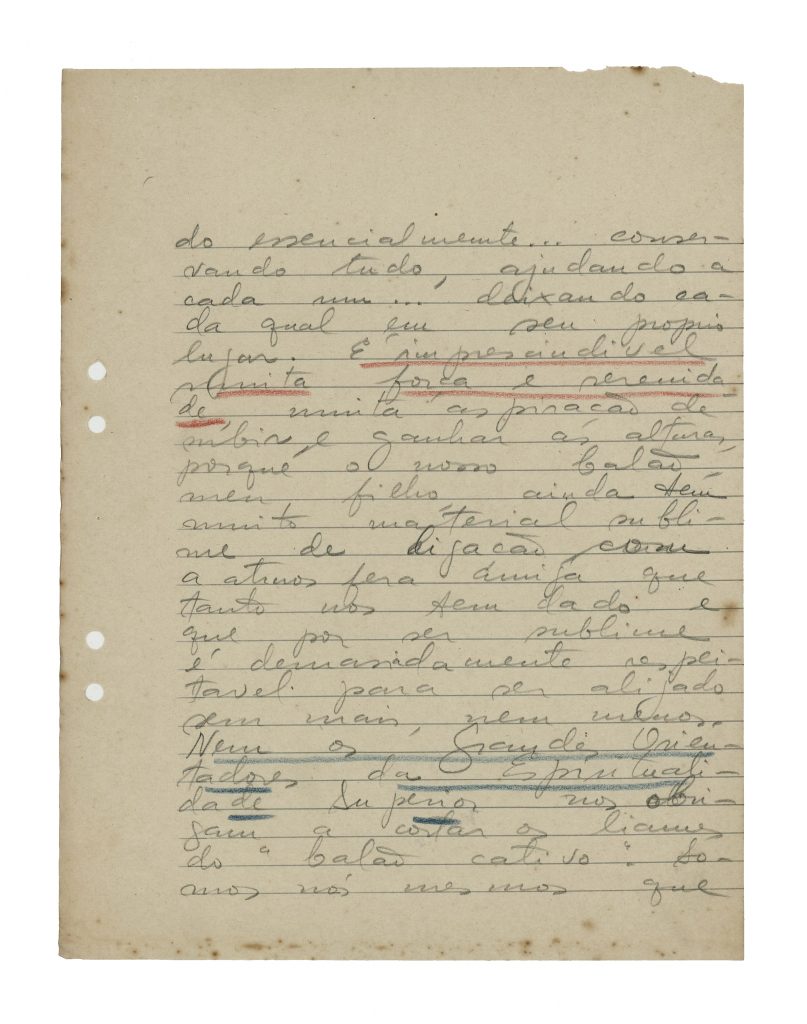 do essencialmente... conser-
vando tudo, ajudando a
cada um... deixando ca-
da qual em seu proprio
lugar. É imprescindivel
muita força e serenida
de, muita aspiração de
subir e ganhar as alturas,
porquê o nosso balão,
meu filho, ainda tem
muito material subli-
me de ligação com
a atmosfera amiga que
tanto nos tem dado e
que por ser sublime
é demasiadamente respei-
tavel para ser alijado
sem mais, nem menos.
Nem os Grandes Orien-
tadores da Espirituali-
dade Superior nos obri-
gam a cortar os liames
do "balão cativo". So-
mos nós mesmos que